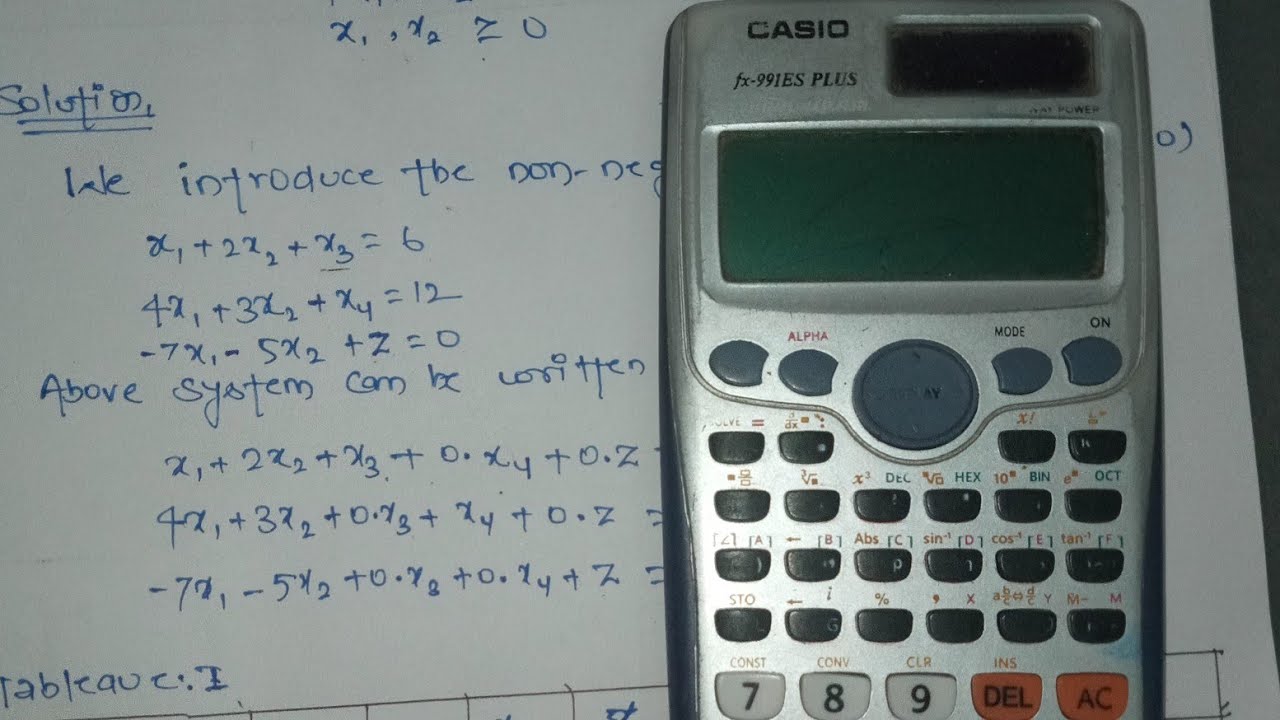 x₁, x₂ ≥ 0
Solution,
We introduce the non-neg
0)
x₁ + 2x₂ + x₃ = 6
4x₁ + 3x₂ + x₄ = 12
-7x₁ - 5x₂ + z = 0
Above system can be written
x₁ + 2x₂ + x₃ + 0.x₄ + 0.z
4x₁ + 3x₂ + 0.x₃ + x₄ + 0.z =
-7x₁ - 5x₂ + 0.x₃ + 0.x₄ + z =
Tableaue:I
CASIO
fx-991ES PLUS
WAY POWER
ALPHA MODE ON
SOLVE = d/dx : x!
x³ DEC HEX 10■ BIN e■ OCT
[∠] [A] ← [B] Abs [C] sin⁻¹ [D] cos⁻¹ [E] tan⁻¹ [F]
STO ← i % , X a b/c⇔d/c Y M- M
CONST CONV CLR INS
7 8 9 DEL AC